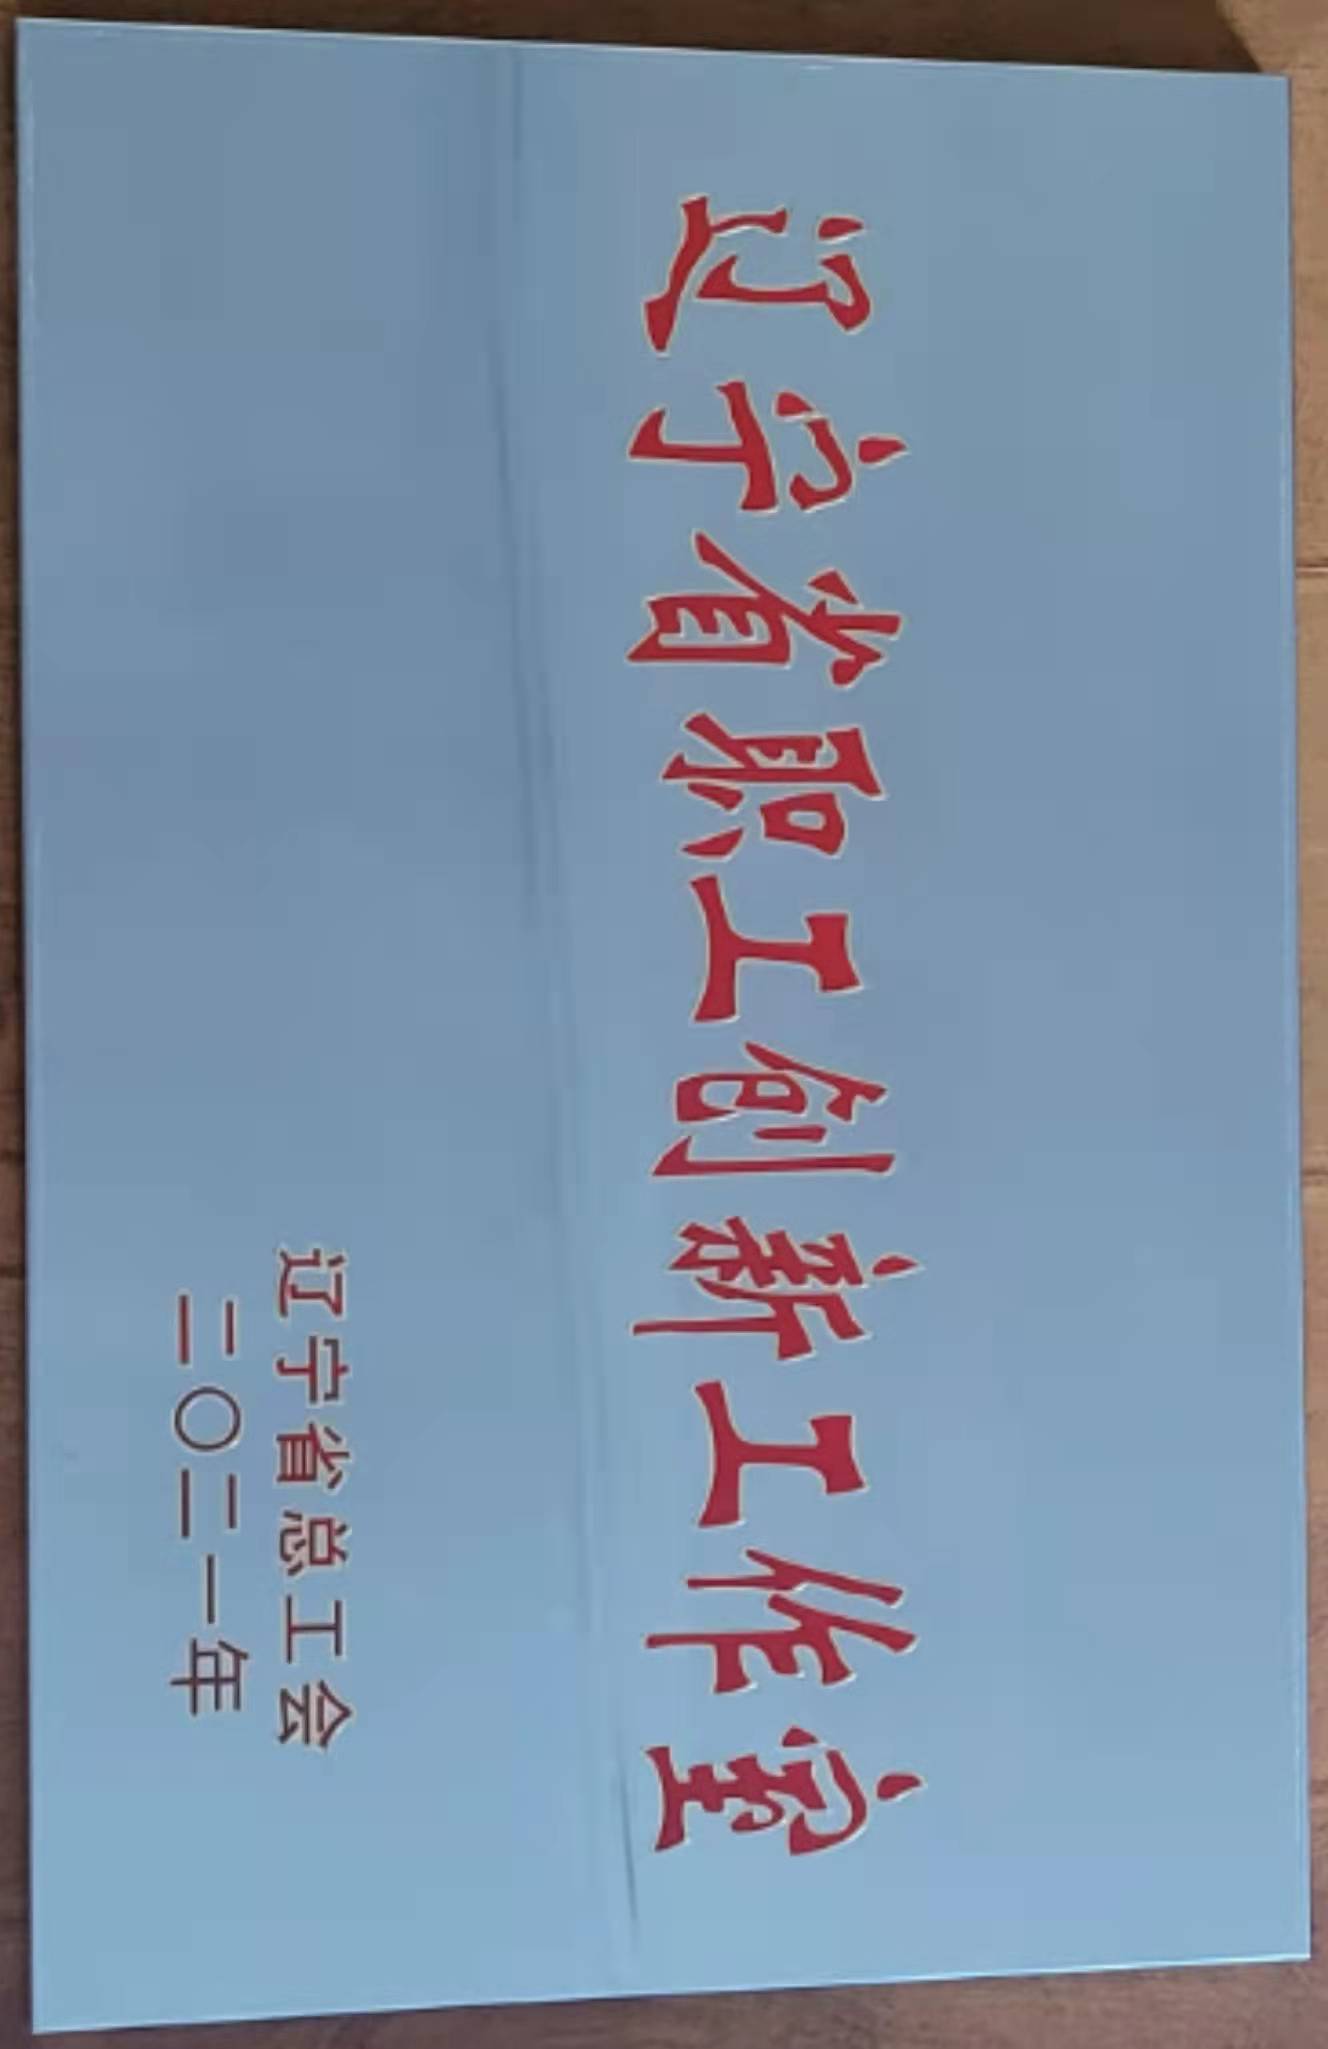 辽宁省职工创新工作室
辽宁省总工会
二〇二一年